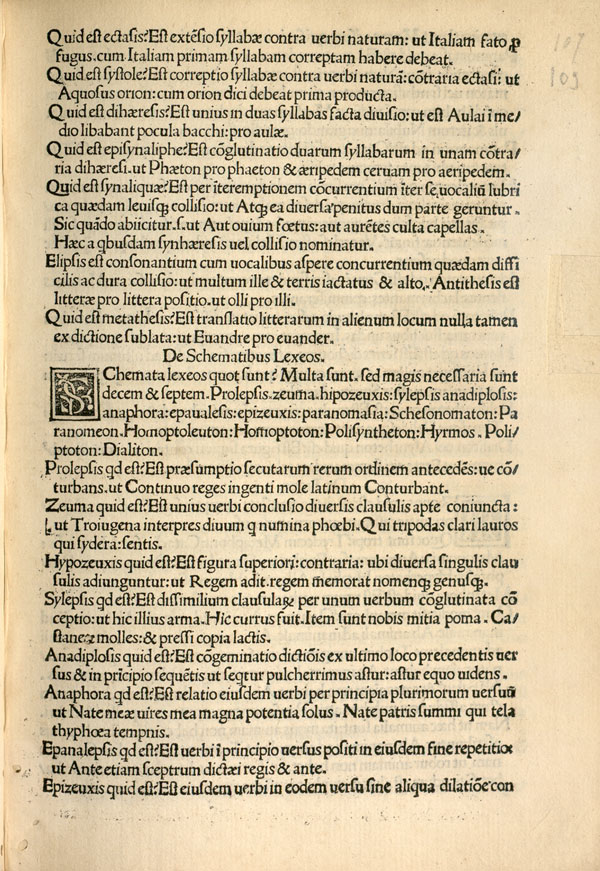 107
103
Quid est ectasis? Est extēsio syllabæ contra uerbi naturam: ut Italiam fato ꝓ
fugus. cum Italiam primam syllabam correptam habere debeat.
Quid est systole? Est correptio syllabæ contra uerbi naturā: cōtraria ectasi: ut
Aquosus orion: cum orion dici debeat prima producta.
Quid est dihæresis? Est unius in duas syllabas facta diuisio: ut est Aulai ī me/
dio libabant pocula bacchi: pro aulæ.
Quid est episynaliphe? Est cōglutinatio duarum syllabarum in unam cōtra/
ria dihæresi. ut Phæton pro phaeton & æripedem ceruam pro aeripedem.
Quid est synaliquæ? Est per īteremptionem cōcurrentium īter se uocaliū lubri
ca quædam leuisq; collisio: ut Atq; ea diuersa penitus dum parte geruntur.
Sic quādo abiicitur. s. ut Aut ouium fœtus: aut aurētes culta capellas.
Hæc a qbusdam synhæresis uel collisio nominatur.
Elipsis est consonantium cum uocalibus aspere concurrentium quædam diffi
cilis ac dura collisio: ut multum ille & terris iactatus & alto. Antithesis est
litteræ pro littera positio. ut olli pro illi.
Quid est metathesis? Est translatio litterarum in alienum locum nulla tamen
ex dictione sublata: ut Euandre pro euander.
De Schematibus Lexeos.
SChemata lexeos quot sunt? Multa sunt. sed magis necessaria sunt
decem & septem. Prolepsis. zeuma. hipozeuxis: sylepsis anadiplosis:
anaphora: epaualesis: epizeuxis: paranomasia: Schesonomaton: Pa
ranomeon. Homoptoleuton: Homoptoton: Polisyntheton: Hyrmos. Poli/
ptoton: Dialiton.
Prolepsis qd est? Est præsumptio secutarum rerum ordinem antecedēs: ue cō/
turbans. ut Continuo reges ingenti mole latinum Conturbant.
Zeuma quid est? Est unius uerbi conclusio diuersis clausulis apte coniuncta:
ut Troiugena interpres diuum q numina phœbi. Qui tripodas clari lauros
qui sydera: sentis.
Hypozeuxis quid est? Est figura superiori: contraria: ubi diuersa singulis clau
sulis adiunguntur: ut Regem adit. regem memorat nomenq; genusq;.
Sylepsis qd est? Est dissimilium clausulaꝝ per unum uerbum cōglutinata cō
ceptio: ut hic illius arma. Hic currus fuit. Item sunt nobis mitia poma. Ca/
staneæ molles: & pressi copia lactis.
Anadiplosis quid est? Est cōgeminatio dictiōis ex ultimo loco precedentis uer
sus & in prīcipio sequētis ut seqtur pulcherrimus astur: astur equo uidens.
Anaphora qd est? Est relatio eiusdem uerbi per principia plurimorum uersuū
ut Nate meæ uires mea magna potentia solus. Nate patris summi qui tela
thyphœa tempnis.
Epanalepsis qd est? Est uerbi ī principio uersus positi in eiusdem fine repetitio:
ut Ante etiam sceptrum dictæi regis & ante.
Epizeuxis quid est? Est eiusdem uerbi in eodem uersu sine aliqua dilatiōe con